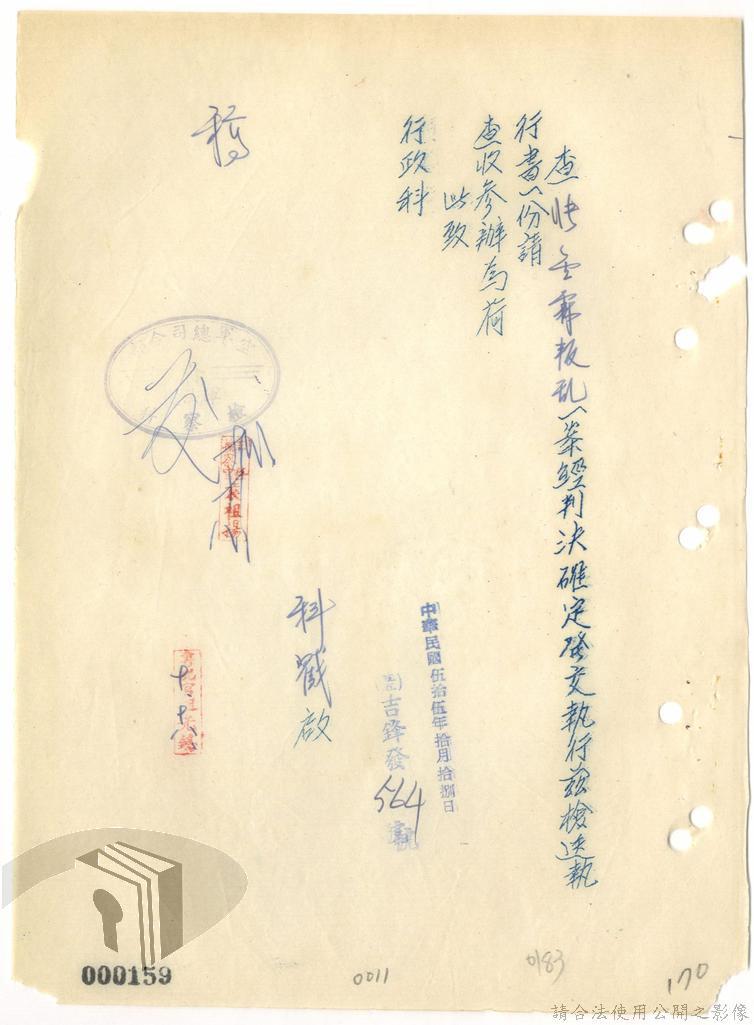 查張金霖叛乱一案經判決確定發交執行茲檢送執
行書一份請
查收參辦為荷
此致
行政科
中華民國伍拾伍年拾月拾捌日
吉鋒發564號
科戳啟
稿
空軍總司令部
發
檢察
十、十八
000159
0011
0183
170
請合法使用公開之影像